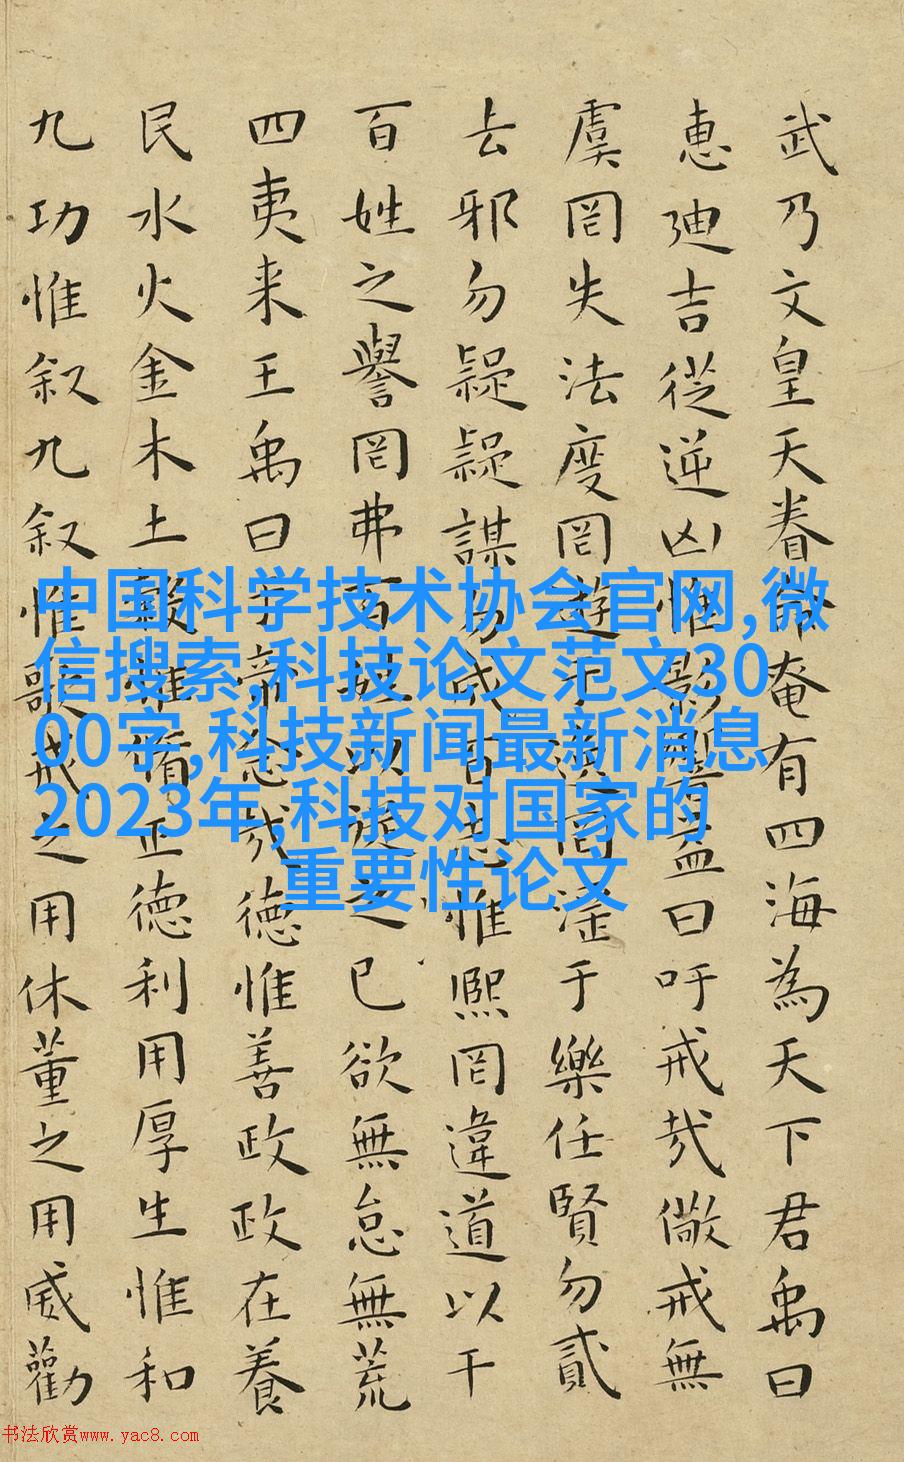 武乃文皇天眷命奄有四海為天下君禹曰
惠迪吉從逆凶惟影響益曰吁戒哉儆戒無
虞罔失法度罔遊于逸罔淫于樂任賢勿貳
去邪勿疑疑謀勿成百志惟熙罔違道以干
百姓之譽罔弗百姓以從之已欲無怠無荒
四夷来王禹曰於帝念哉德惟善政政在養
民水火金木土穀惟脩正德利用厚生惟和
九功惟叙九叙惟歌戒之用休董之用威勸
中国科学技术协会官网,微
信搜索,科技论文范文30
00字,科技新闻最新消息
2023年,科技对国家的
重要性论文
书法欣赏www.yac8.com